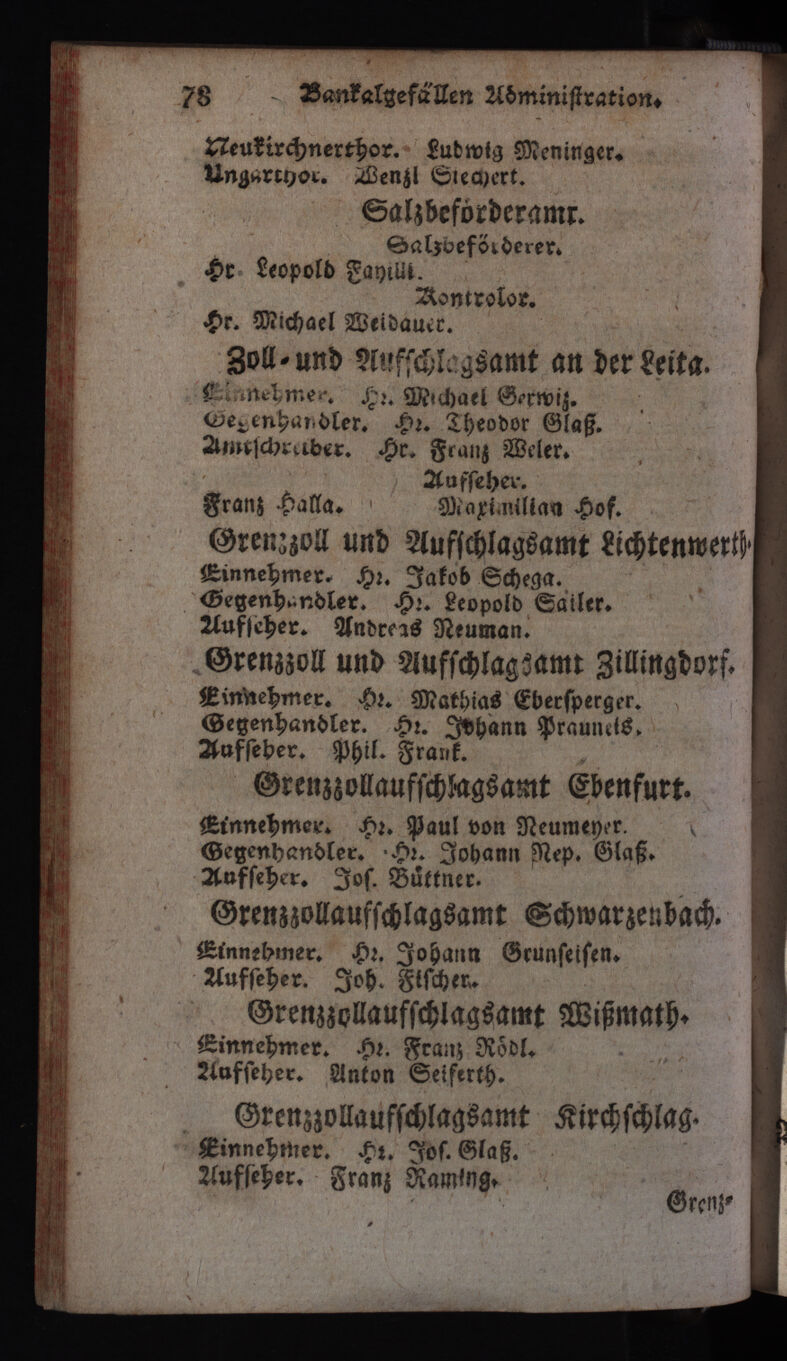 78 Bankalgefällen Administration.
Neukirchnerthor. Ludwig Meninger.
Ungarthor. Wenzl Siechert.
Salzbeförderamt.
Salzbeförderer.
Hr. Leopold
Kontrolor.
Hr. Michael Weidauer.
Zoll- und Aufſchlagsamt an der Leita.
Einnehmer. Hr. Michael Gerwiz.
Gegenhandler. Hr. Theodor Glaß.
Amtſchreiber. Hr. Franz Weler.
Aufſeher.
Franz Halla. Maximilian Hof.
Grenzzoll und Aufſchlagsamt Lichtenwerth
Einnehmer. Hr. Jakob Schega.
Gegenhandler. Hr. Leopold Sailer.
Aufſeher. Andreas Neuman.
Grenzzoll und Aufſchlagsamt Zillingdorf.
Einnehmer. Hr. Mathias Eberſperger.
Gegenhandler. Hr. Johann Prauneis.
Aufſeher. Phil. Frank.
Grenzzollaufſchlagsamt Ebenfurt.
Einnehmer. Hr. Paul von Neumeyer.
Gegenhandler. Hr. Johann Nep. Glaß.
Aufſeher. Joſ. Büttner.
Grenzzollaufſchlagsamt Schwarzenbach.
Einnehmer. Hr. Johann Grunſeiſen.
Aufſeher. Joh. Fiſcher.
Grenzzollaufſchlagsamt Wißmath.
Einnehmer. Hr. Franz Rödl.
Aufſeher. Anton Seiferth.
Grenzzollaufſchlagsamt Kirchſchlag.
Einnehmer. Hr. Joſ. Glaß.
Aufſeher. Franz Raming.
Grenz-